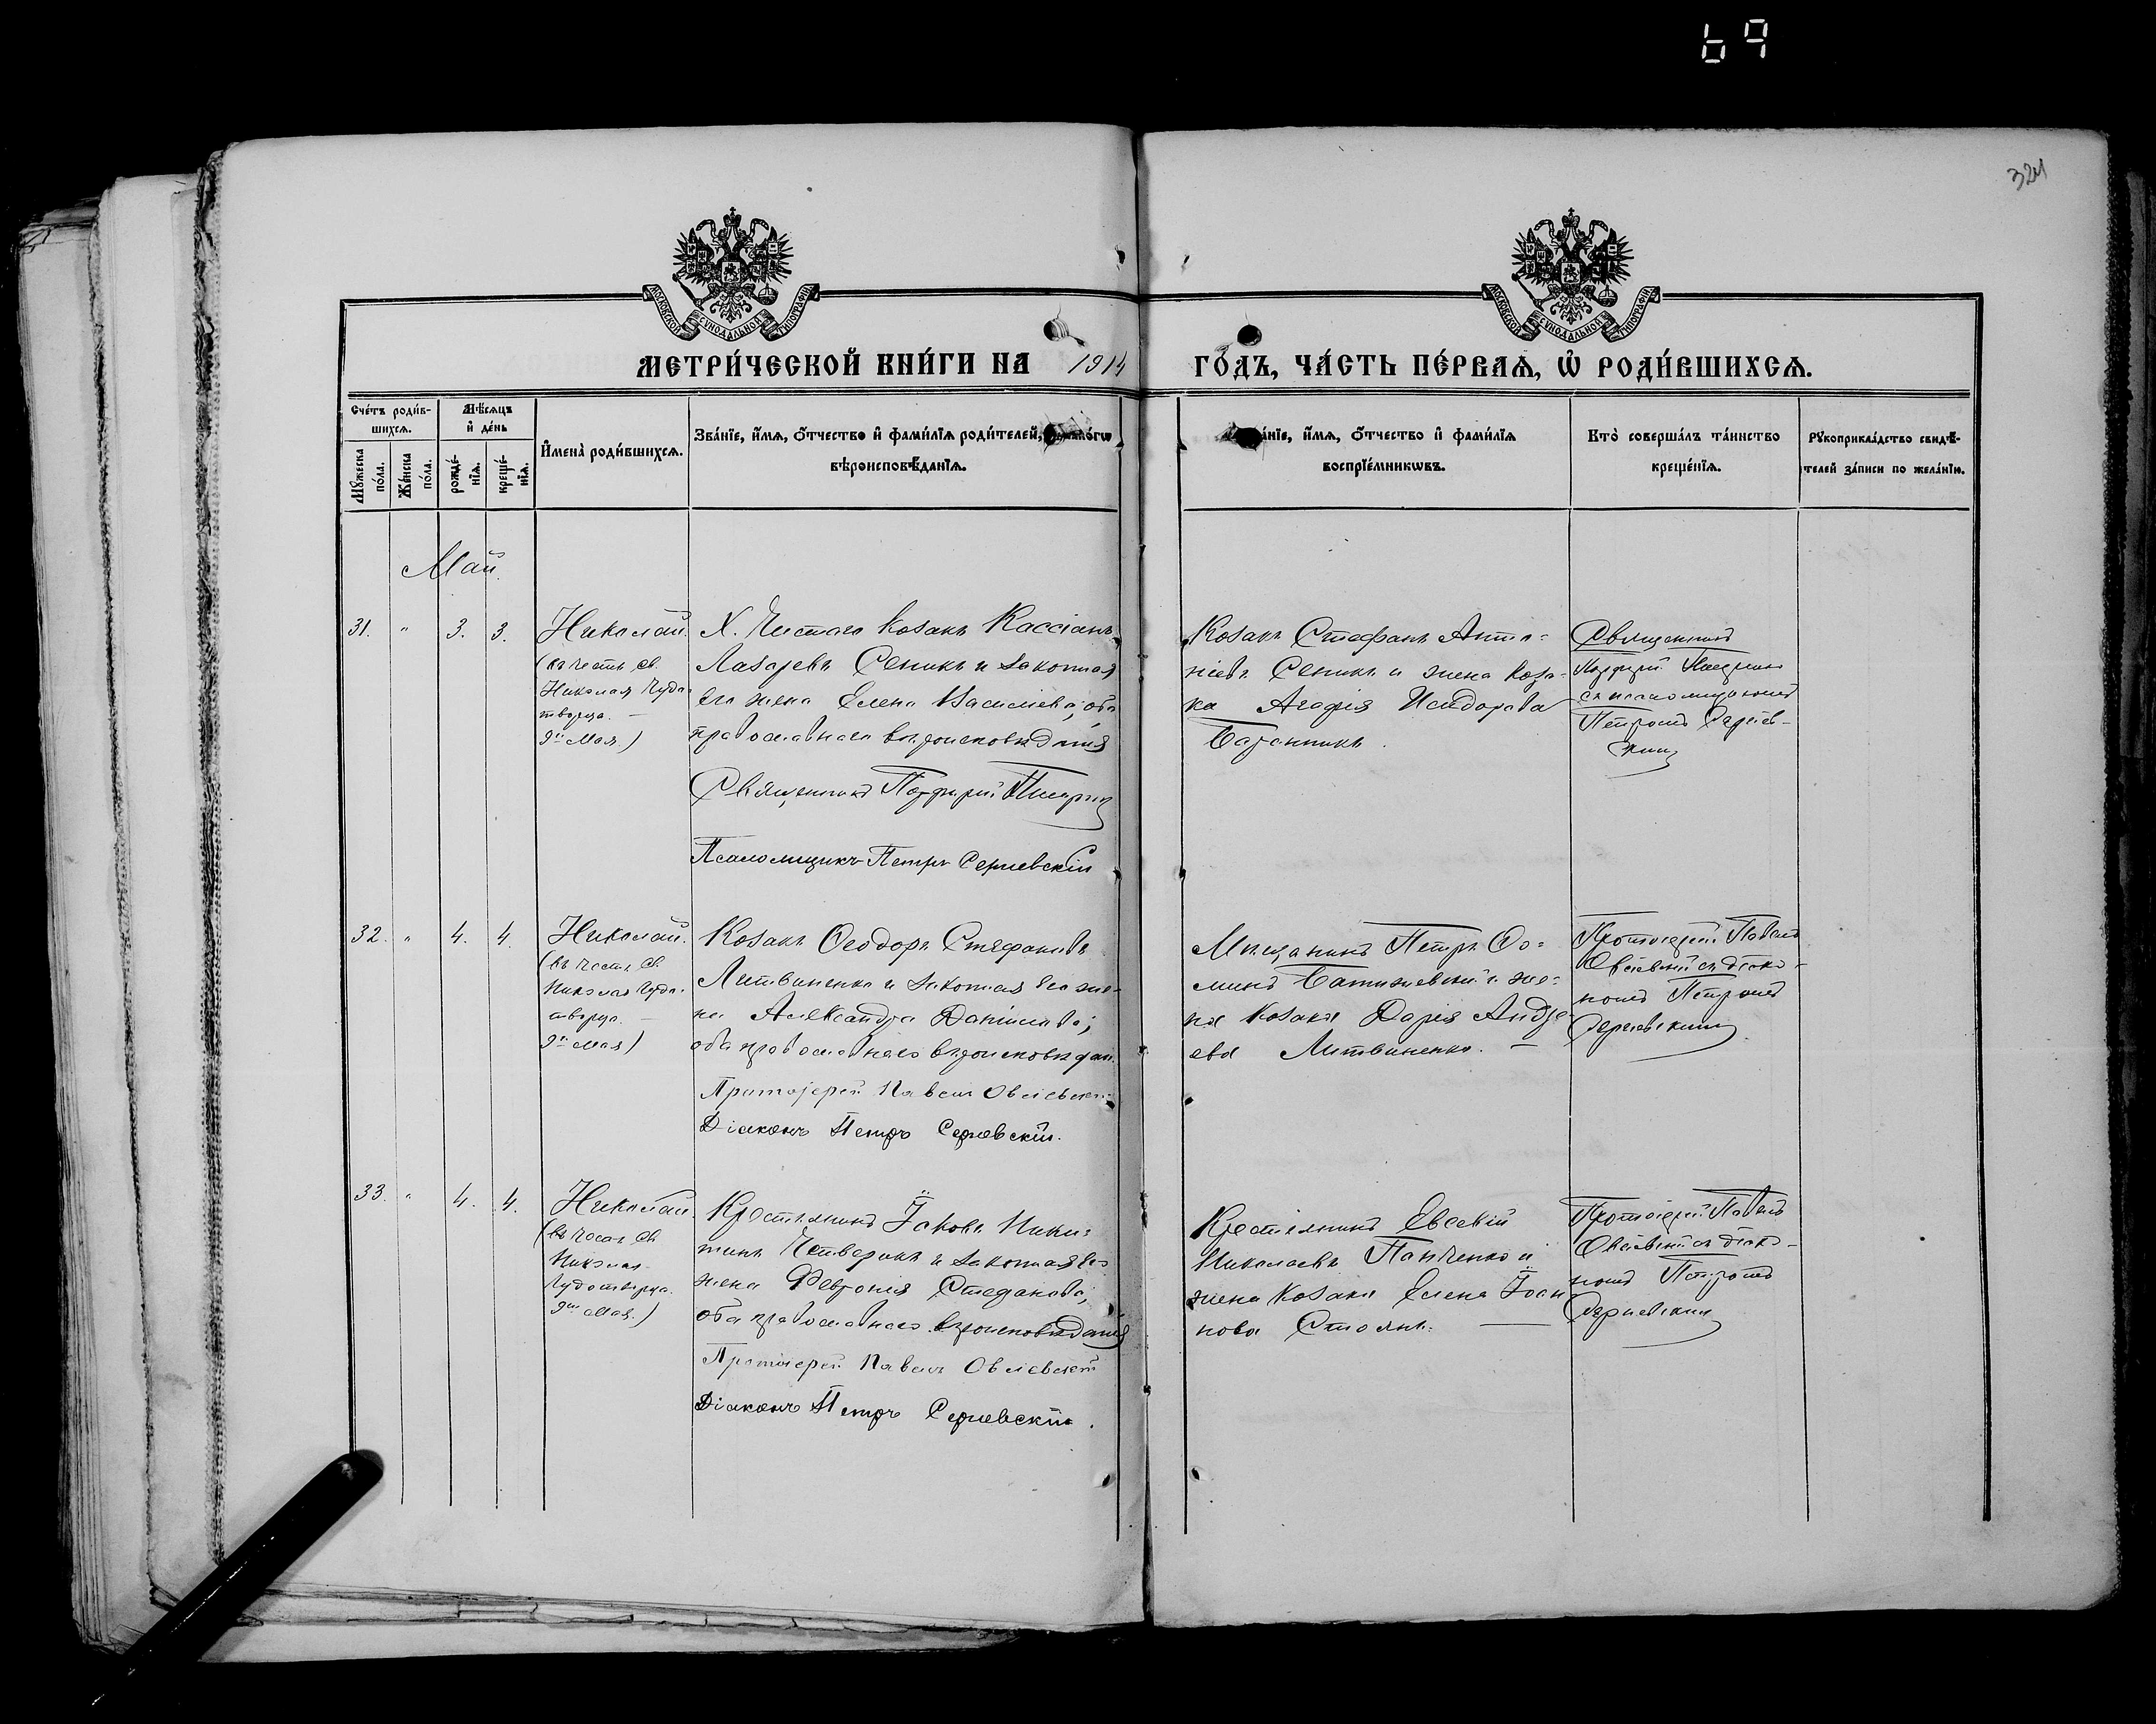 69
324
МОСКОВСКОЙ СУНОДАЛЬНОЙ ТИПОГРАФІИ
МОСКОВСКОЙ СУНОДАЛЬНОЙ ТИПОГРАФІИ
МЕТРИ́ЧЕСКОЙ КНИ́ГИ НА 1914 ГО́ДЪ, ЧА́СТЬ ПЕ́РВАѦ, Ѡ҆ РОДИ́ВШИХСѦ.
Сче́тъ роди́в-
шихсѧ.
Мѣ́сѧцъ
и҆ де́нь
Мꙋ́жеска
по́ла.
Же́нска
по́ла.
рожде́-
нїѧ.
креще́-
нїѧ.
И҆мена̀ роди́вшихсѧ.
Зва́нїе, и҆́мѧ, ѻ҆́тчество и҆ фами́лїѧ роди́телей,
вѣроисповѣ́данїѧ.
и҆́мѧ, ѻ҆́тчество и҆ фами́лїѧ
воспрїе́мникѡвъ.
Кто̀ соверша́лъ та́инство
креще́нїѧ.
Рꙋкоприкла́дство свидѣ́-
телей за́писи по жела́нїю.
Май.
31. " 3. 3.
Николай.
(въ честь Св.
Николая Чудо-
творца. —
9го Мая.)
Х. Чистаго Козакъ Кассіанъ
Лазаревъ Сеникъ и законная
его жена Елена Васильева, оба
православнаго вѣроисповѣданія
Священникъ Порфирій
Псаломщикъ Петръ Сергіевскій
Козакъ Стефанъ Анто-
ніевъ Сеникъ и жена коза-
ка Агафія Исидорова
Баранникъ.
Священникъ
Порфирій
съ псаломщикомъ
Петромъ Сергіев-
скимъ
32. " 4. 4.
Николай.
(въ честь Св.
Николая Чудо-
творца. —
9го мая)
Козакъ Ѳеодоръ Стефановъ
Литвиненко и законная его же-
на Александра Данилова;
оба православнаго вѣроисповѣдан.
Протоіерей Павелъ
Діаконъ Петръ Сергіевскій.
Мѣщанинъ Петръ Ѳо-
минъ и же-
на козака Дарія Андре-
ева Литвиненко. —
Протоіерей Павелъ
съ діако-
номъ Петромъ
Сергіевскимъ
33. " 4. 4.
Николай.
(въ честь Св.
Николая
Чудотворца.
9го мая.)
Крестьянинъ Іаковъ Ники-
тинъ Четверикъ и законная его
жена Феврония Стефанова,
оба православнаго вѣроисповѣданія
Протоіерей Павелъ
Діаконъ Петръ Сергіевскій.
Крестьянинъ Евсевій
Николаевъ Панченко и
жена козака Елена Іоан
нова Стоянъ. —
Протоіерей Павелъ
съ діако-
номъ Петромъ
Сергіевскимъ